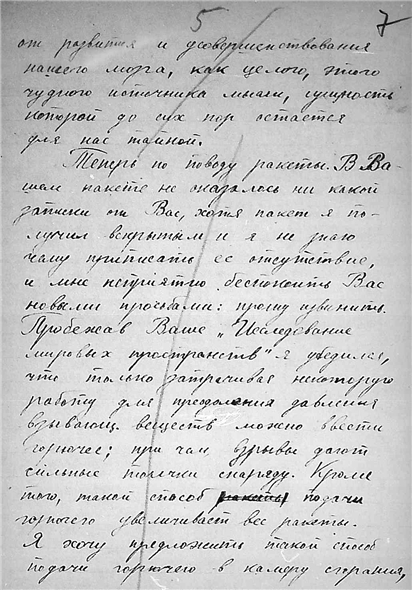 5 7
от развития и усовершенствования
нашего мозга, как целого, этого
чудного источника мысли, сущность
которой до сих пор остается
для нас тайной.
Теперь по поводу ракеты. В Ва-
шем пакете не оказалось ни какой
записки от Вас, хотя пакет я по-
лучил вскрытым и я не знаю
чему приписать ее отсутствие,
и мне неприятно беспокоить Вас
новыми просьбами: прошу извинить.
Пробежав Ваше „Исследование
мировых пространств" я убедился,
что только затрачивая некоторую
работу для преодоления давления
взрывающ. веществ можно ввести
горючее; при чем взрывы дают
сильные толчки снаряду. Кроме
того, такой способ ракеты подачи
горючего увеличивает вес ракеты.
Я хочу предложить такой способ
подачи горючего в камеру сгорания,